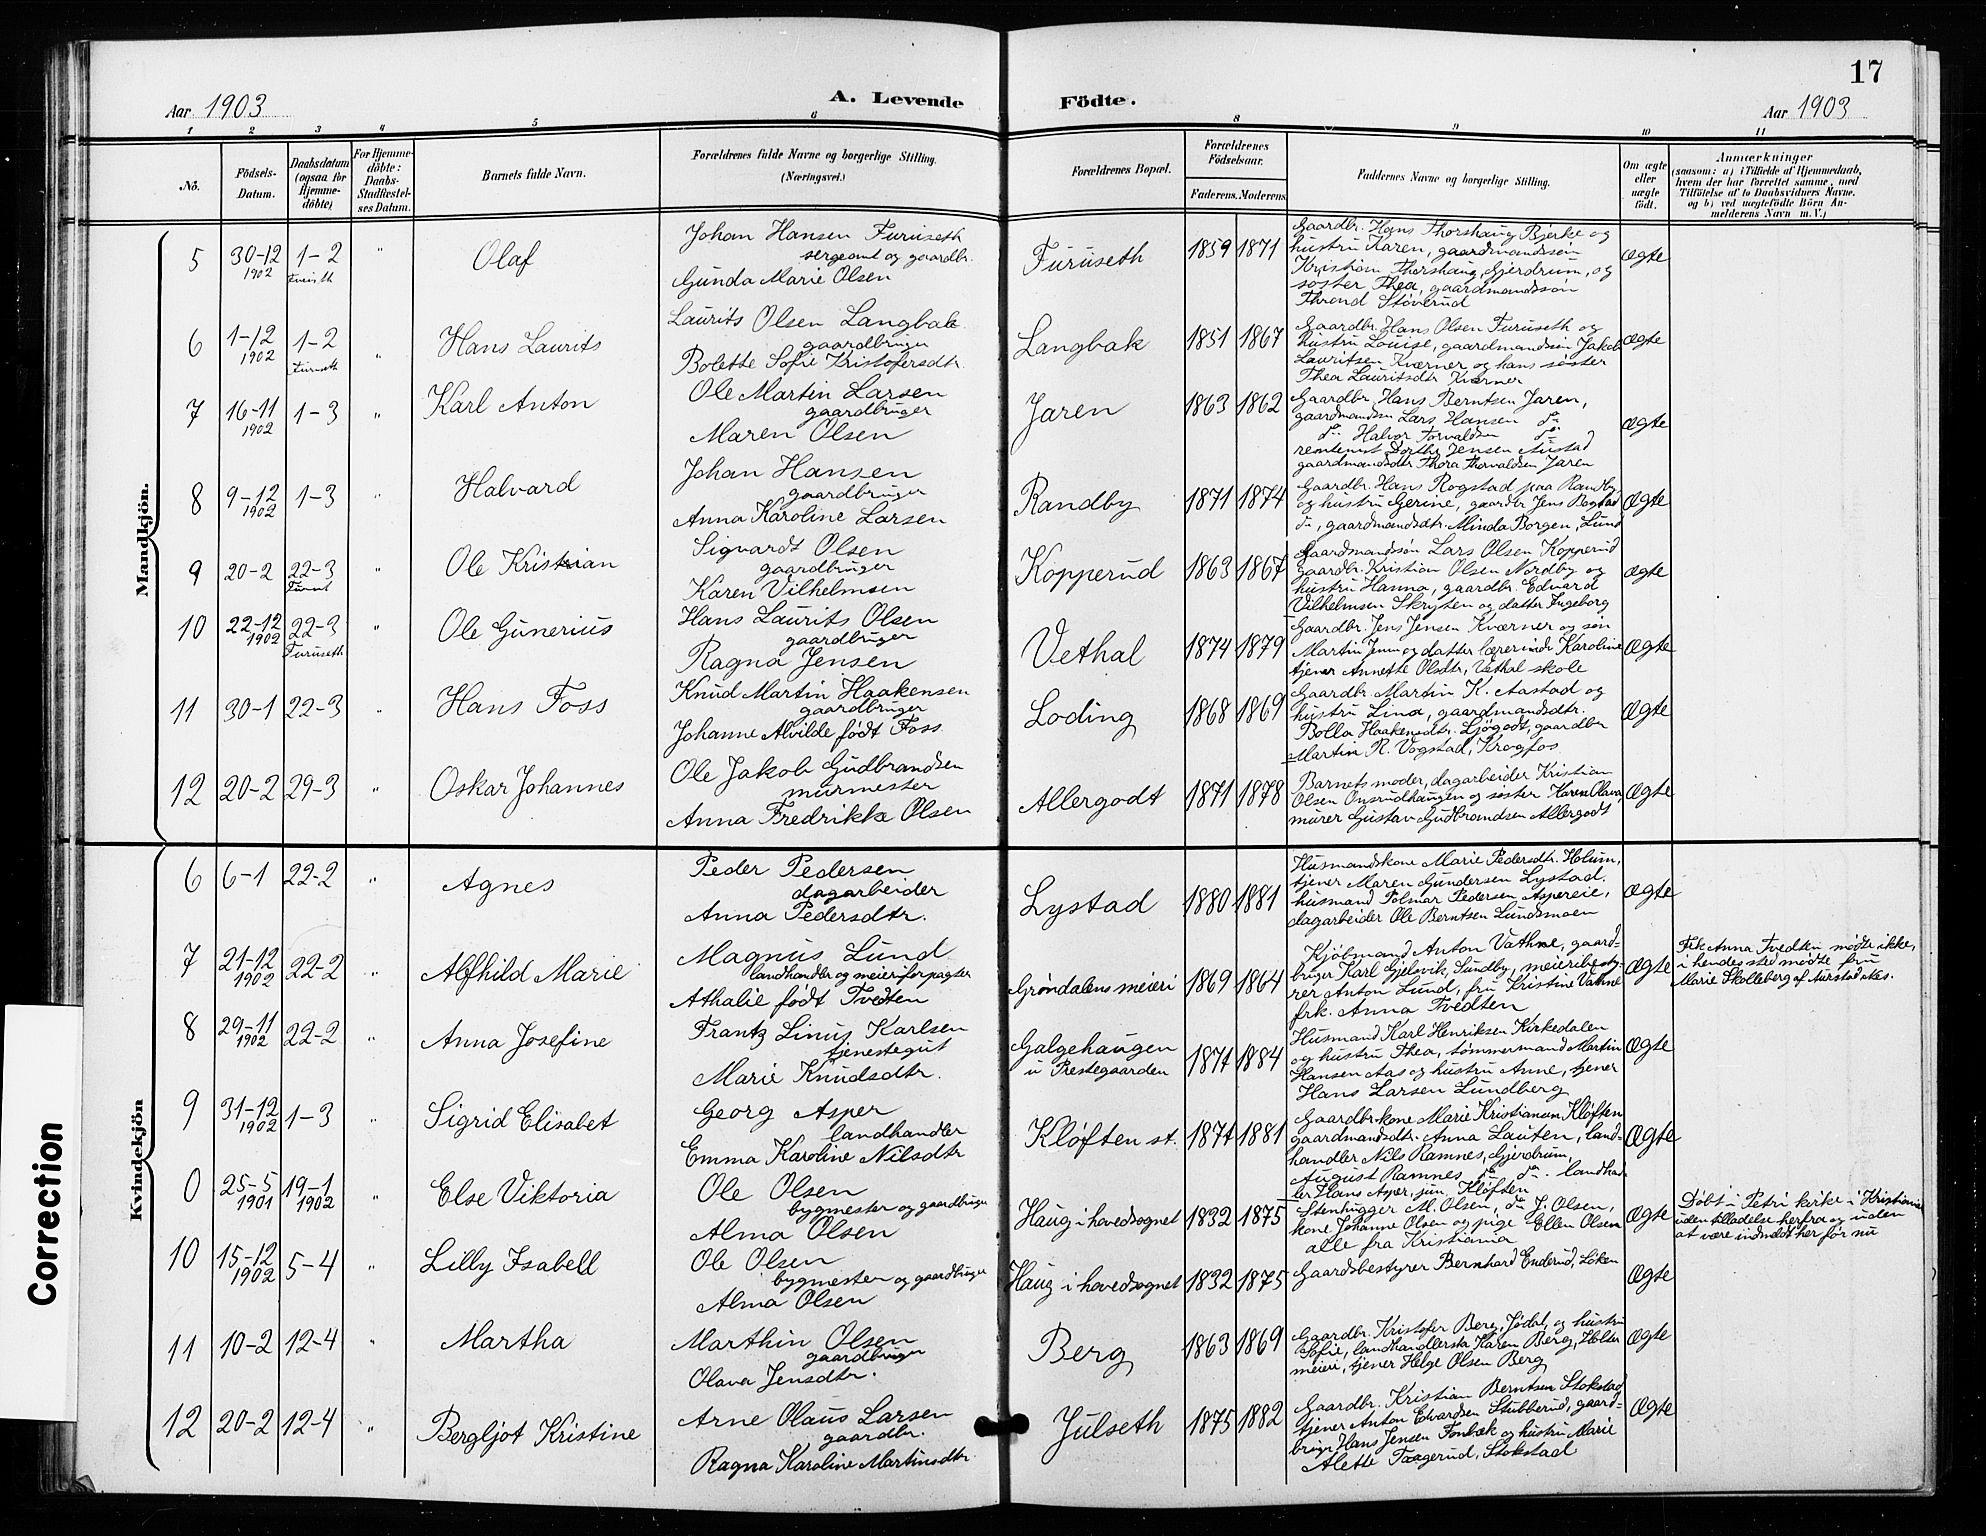 17
Aar 1903
A. Levende Födte.
Aar 1903
1 2 3 4 5 6 8 9 10 11
No.
Födsels-
Datum.
Daabsdatum
(ogsaa for
Hjemme-
döbte)
For Hjemme-
döbte:
Daabs-
Stadfæstel-
ses Datum.
Barnets fulde Navn.
Forældrenes fulde Navne og borgerlige Stilling.
(Næringsvei.)
Forældrenes Bopæl.
Forældrenes
Födselsaar.
Faderens. Moderens.
Faddernes Navne og borgerlige Stilling.
Om ægte
eller
uægte
födt.
Anmærkninger
(saasom: a) i Tilfælde af Hjemmedaab,
hvem der har forrettet samme, med
Tilföielse af to Daabsvidners Navne.
og b) ved uægtefödte Börn An-
melderens Navn m. V.)
Mandkjön.
5 30-12 1902 1-2 " Olaf
Johan Hansen Furuseth
sergeant og gaardbr.
Gunda Marie Olsen
Furuseth 1859 1871
Gaardbr. Hans Thorshaug Bjerke og
hustru Karen, gaardmandssön
Kristian Thorshaug, Gjerdrum, og
søster Thea, gaardmandssön
Thrond Støverud
Ægte
6 1-12 1902 1-2 Furuseth " Hans Laurits
Laurits Olsen Langbak
gaardbruger
Bolette Sofie Kristofersdtr.
Langbak 1851 1867
Gaardbr. Hans Olsen Furuseth og
hustru Louise, gaardmandssön Jakob
Lauritsen Kværner og hans søster
Thea Lauritsdtr Kværner
Ægte
7 16-11 1902 1-3 " Karl Anton
Ole Martin Larsen
gaardbruger
Maren Olsen
Jaren 1863 1862
Gaardbr. Hans Berntsen Jaren,
gaardmandssn Lars Hansen do
do Halvor Torvaldsen do
rentenist Dorthe Jensen Austad
gaardmandsdtr Thora Thorvaldsen Jaren
Ægte
8 9-12 1902 1-3 " Halvard
Johan Hansen
gaardbruger
Anna Karoline Larsen
Randby 1871 1874
Gaardbr. Hans Rogstad paa Randby
og hustru Gerine, gaardbr Jens Rogstad
do, gaardmandsdtr. Minda Borgen, Lund
Ægte
9 20-2 22-3 " Ole Kristian
Sigvardt Olsen
gaardbruger
Karen Vilhelmsen
Kopperud 1863 1867
Gaardmandssön Lars Olsen Kopperud
gaardbr. Kristian Olsen Nordby og
hustru Hanna, gaardbr. Edvard
Vilhelmsen Skrysten og datter Ingeborg
Ægte
10 22-12 1902 22-3 Furuseth " Ole Gunerius
Hans Laurits Olsen
gaardbruger
Ragna Jensen
Vethal 1874 1879
Gaardbr. Jens Jensen Kværner og søn
Martin Jensen og datter lærerinde Karoline
tjener Annette Olsdtr, Vethal skole
Ægte
11 30-1 22-3 " Hans Foss
Knud Martin Haakensen
gaardbruger
Johanne Alvilde født Foss
Loding 1868 1869
Gaardbr. Martin K. Aastad og
hustru Lina, gaardmandsdtr.
Bolla Haakensdtr. Ljøgodt, gaardbr
Martin R. Vogstad, Krogfos
Ægte
12 20-2 29-3 " Oskar Johannes
Ole Jakob Gudbrandsen
murmester
Anna Fredrikke Olsen
Allergodt 1871 1878
Barnets moder, dagarbeider Kristian
Olsen Onsrudhaugen og søster Karen Olava,
murer Gustav Gudbrandsen Allergodt
Ægte
Kvindekjön
6 6-1 22-2 " Agnes
Peder Pedersen
dagarbeider
Anna Pedersdtr.
Lystad 1880 1881
Husmandskone Marie Pedersdtr. Holum,
tjener Maren Gundersen Lystad,
husmand Polmar Pedersen Aspereie,
dagarbeider Ole Berntsen Lundsmoen
Ægte
7 21-12 1902 22-2 " Alfhild Marie
Magnus Lund
landhandler og meieriforpagter
Athalie født Tvedten
Grøndalens meieri 1869 1864
Kjöbmand Anton Vathne, gaard-
bruger Karl Gjelsvik, Sundby, meieribesty-
rer Anton Lund, fru Kristine Vathne
frk. Anna Tvedten
Ægte
Frk Anna Tvedten mødte ikke,
i hendes sted mødte fru
Marie Skolleberg af Aurstad Nes.
8 29-11 1902 22-2 " Anna Josefine
Frantz Linus Karlsen
tjenestegut
Marie Knudsdtr.
Galgehaugen
u Prestegaarden 1871 1884
Husmand Karl Henriksen Kirkedalen
og hustru Thea, tømmermand Martin
Hansen Aas og hustru Anne, tjener
Hans Larsen Lundberg
Ægte
9 31-12 1902 1-3 " Sigrid Elisabet
Georg Asper
landhandler
Emma Karoline Nilsdtr
Kløften st. 1871 1881
Gaardbr.kone Marie Kristiansen Kløften
gaardmandsdtr. Anna Lauten, land-
handler Nils Ramnes, Gjerdrum,
August Ramnes do do. landhand
ler Hans Asper, jun Kløften
Ægte
0 25-5 1901 19-1 1902 " Else Viktoria
Ole Olsen
bygmester og gaardbruger
Alma Olsen
Haug i hovedsognet 1832 1875
Stenhugger M. Olsen, do J. Olsen,
kone Johanne Olsen og pige Ellen Olsen
alle fra Kristiania
Ægte
Døbt i Petri kirke i Kristiania
uden tilladelse herfra og uden
at være indmeldt her før nu
10 15-12 1902 5-4 " Lilly Isabell
Ole Olsen
bygmester og gaardbruger
Alma Olsen
Haug i hovedsognet 1832 1875
Gaardsbestyrer Bernhard Enderud, Løken
Ægte
11 10-2 12-4 " Martha
Marthin Olsen
gaardbruger
Olava Jensdtr.
Berg 1863 1869
Gaardbr. Kristofer Berg, Jødal, og hustru
Sofie, landhandlerske Karen Berg, Holter
meieri, tjener Helge Olsen Berg
Ægte
12 20-2 12-4 " Bergljot Kristine
Arne Olaus Larsen
gaardbr.
Ragna Karoline Martinsdtr
Julseth 1875 1882
Gaardbr. Kristian Berntsen Stokstad
tjener Anton Edvardsen Stubberud, gaard-
bruger Hans Jensen Fonbæk og hustru Marie
Alette Faagerud, Stokstad
Ægte
Correction